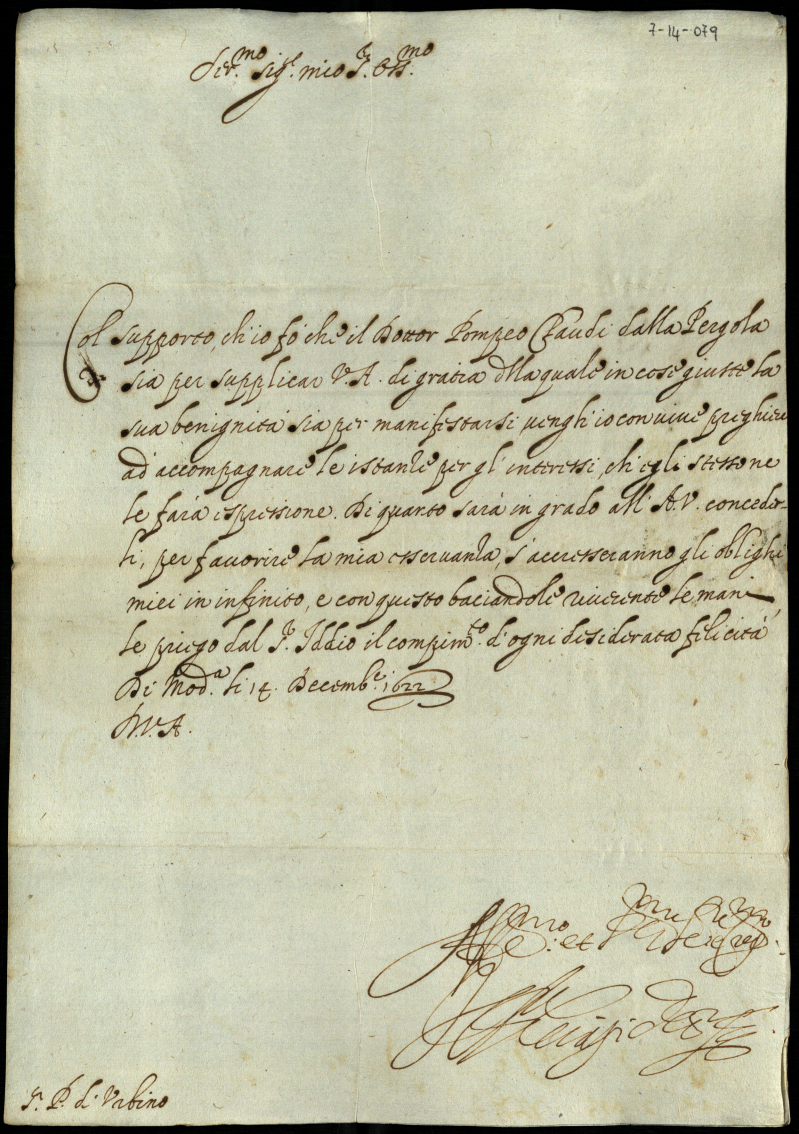 7-14-079
Ser.mo sig.r mio S.r Oss.mo
Col supposto, ch'io fò che il Dottor Pompeo Claudi dalla Pergola
sia per supplicar V.A. di gratia nella quale in cose giuste la
sua benignità sia per manifestarsi, vengh'io con vive preghiere
ad accompagnare le istanze per gl'interessi, ch'egli stesso ne
le farà espressione. Di quanto sarà in grado all'A.V. conceder-
li, per favorire la mia osservanza, s'accresseranno gli oblighi
miei in infinito, e con questo baciandole riverente le mani
le priego dal S.r Iddio il compim.to d'ogni desiderata felicità
Di Mod.a li 14. Decemb.e 1622
D.V.A.
Aff.mo et
S.r P. d'Urbino